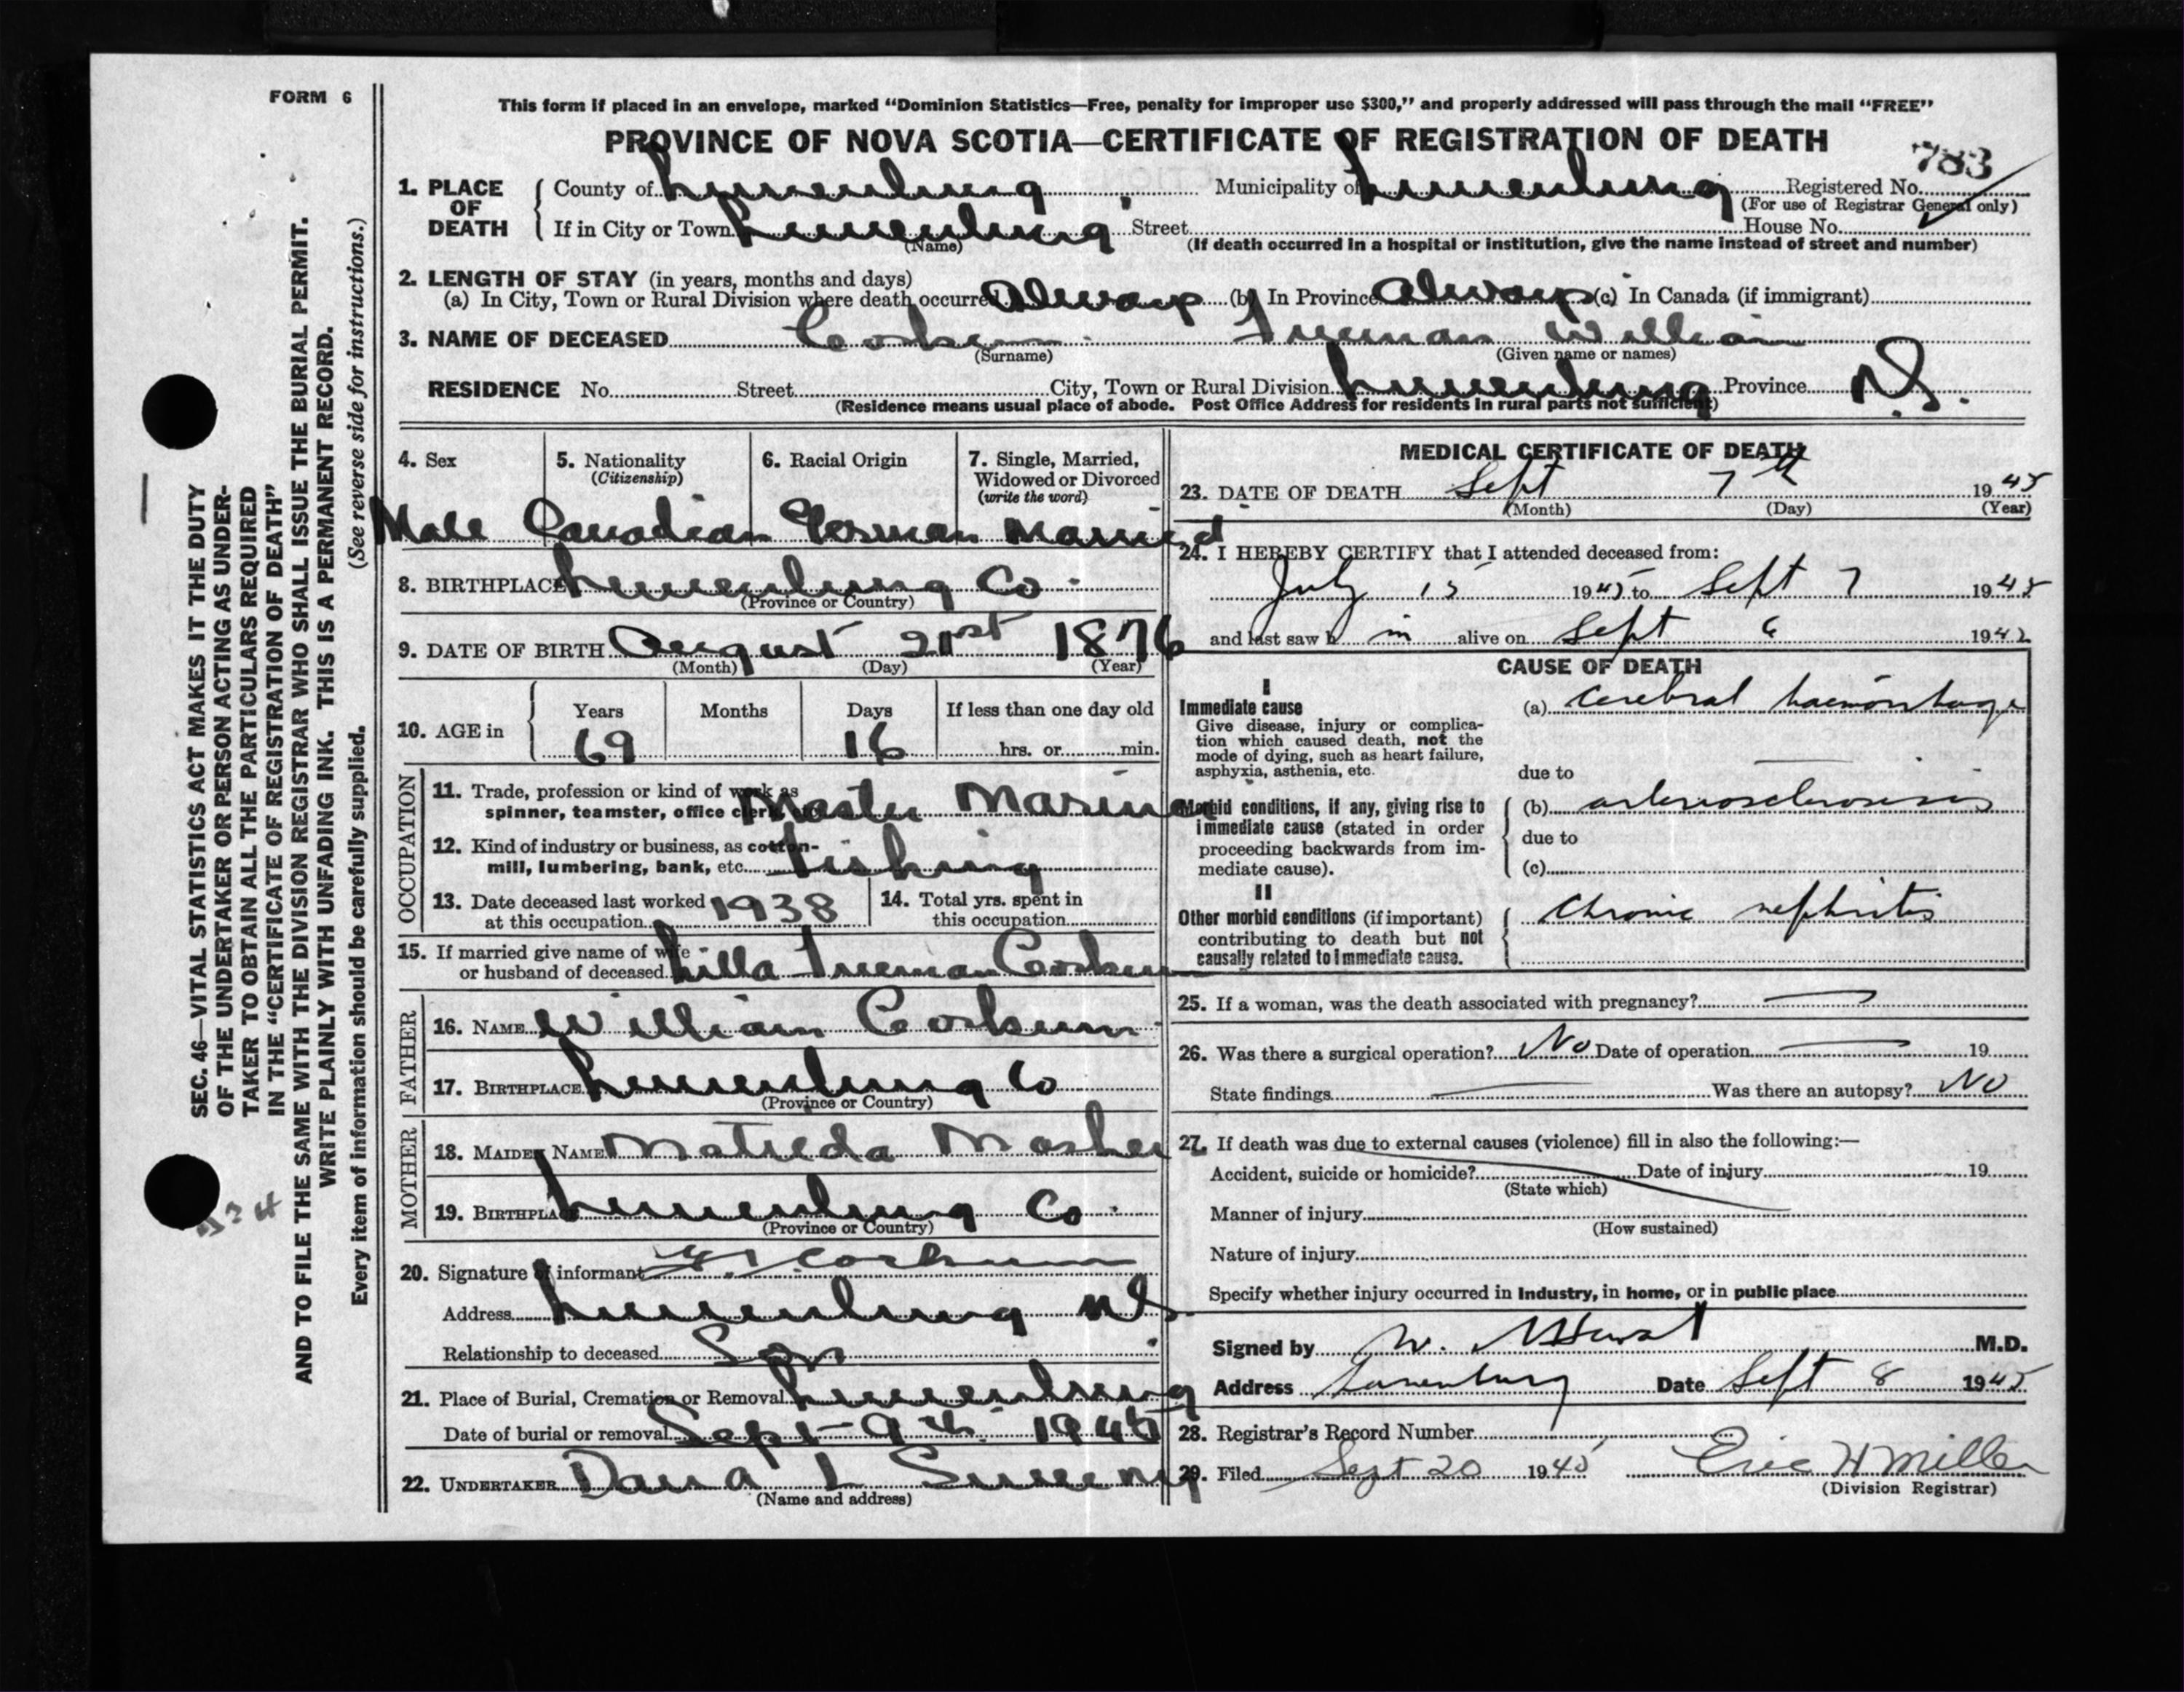 FORM 6
This form if placed in an envelope, marked “Dominion Statistics—Free, penalty for improper use $300,” and properly addressed will pass through the mail “FREE”
PROVINCE OF NOVA SCOTIA—CERTIFICATE OF REGISTRATION OF DEATH
783
1. PLACE OF DEATH County of Lunenburg Municipality of Lunenburg Registered No.
(For use of Registrar General only)
If in City or Town Lunenburg Street House No.
(Name) (If death occurred in a hospital or institution, give the name instead of street and number)
2. LENGTH OF STAY (in years, months and days)
(a) In City, Town or Rural Division where death occurred Always (b) In Province Always (c) In Canada (if immigrant)
3. NAME OF DECEASED Corkum Freeman William
(Surname) (Given name or names)
RESIDENCE No. Street City, Town or Rural Division Lunenburg Province N.S.
(Residence means usual place of abode. Post Office Address for residents in rural parts not sufficient)
4. Sex 5. Nationality 6. Racial Origin 7. Single, Married,
(Citizenship) Widowed or Divorced
(write the word)
Male Canadian German Married
8. BIRTHPLACE Lunenburg Co.
(Province or Country)
9. DATE OF BIRTH August 21st 1876
(Month) (Day) (Year)
10. AGE in Years Months Days If less than one day old
69 16 hrs. or min.
OCCUPATION
11. Trade, profession or kind of work as
spinner, teamster, office clerk, Master Mariner
12. Kind of industry or business, as cotton-
mill, lumbering, bank, etc. Fishing
13. Date deceased last worked
at this occupation 1938
14. Total yrs. spent in
this occupation
15. If married give name of wife
or husband of deceased Lilla Freeman Corkum
FATHER
16. NAME William Corkum
17. BIRTHPLACE Lunenburg Co
(Province or Country)
MOTHER
18. MAIDEN NAME Matilda Mosher
19. BIRTHPLACE Lunenburg Co.
(Province or Country)
20. Signature of informant Corkum
Address Lunenburg N.S.
Relationship to deceased Son
21. Place of Burial, Cremation or Removal Lunenburg
Date of burial or removal Sept 9th 1945
22. UNDERTAKER Dana L Sweeny
(Name and address)
MEDICAL CERTIFICATE OF DEATH
23. DATE OF DEATH Sept 7th 1945
(Month) (Day) (Year)
24. I HEREBY CERTIFY that I attended deceased from:
July 15 1945 to Sept 7 1945
and last saw h im alive on Sept 6 194
CAUSE OF DEATH
I
Immediate cause (a) cerebral haemorrhage
Give disease, injury or complica-
tion which caused death, not the
mode of dying, such as heart failure,
asphyxia, asthenia, etc. due to
Morbid conditions, if any, giving rise to (b) arteriosclerosis
immediate cause (stated in order
proceeding backwards from im- due to
mediate cause). (c)
II
Other morbid conditions (if important) Chronic nephritis
contributing to death but not
causally related to immediate cause.
25. If a woman, was the death associated with pregnancy? —
26. Was there a surgical operation? No Date of operation — 19
State findings — Was there an autopsy? No
27. If death was due to external causes (violence) fill in also the following:—
Accident, suicide or homicide? Date of injury 19
(State which)
Manner of injury
(How sustained)
Nature of injury
Specify whether injury occurred in Industry, in home, or in public place
Signed by W. M.D.
Address Lunenburg Date Sept 8 1945
28. Registrar's Record Number
29. Filed Sept 20 1945 Eric H Miller
(Division Registrar)
SEC. 46—VITAL STATISTICS ACT MAKES IT THE DUTY
OF THE UNDERTAKER OR PERSON ACTING AS UNDER-
TAKER TO OBTAIN ALL THE PARTICULARS REQUIRED
IN THE “CERTIFICATE OF REGISTRATION OF DEATH”
AND TO FILE THE SAME WITH THE DIVISION REGISTRAR WHO SHALL ISSUE THE BURIAL PERMIT.
WRITE PLAINLY WITH UNFADING INK. THIS IS A PERMANENT RECORD.
Every item of information should be carefully supplied. (See reverse side for instructions.)